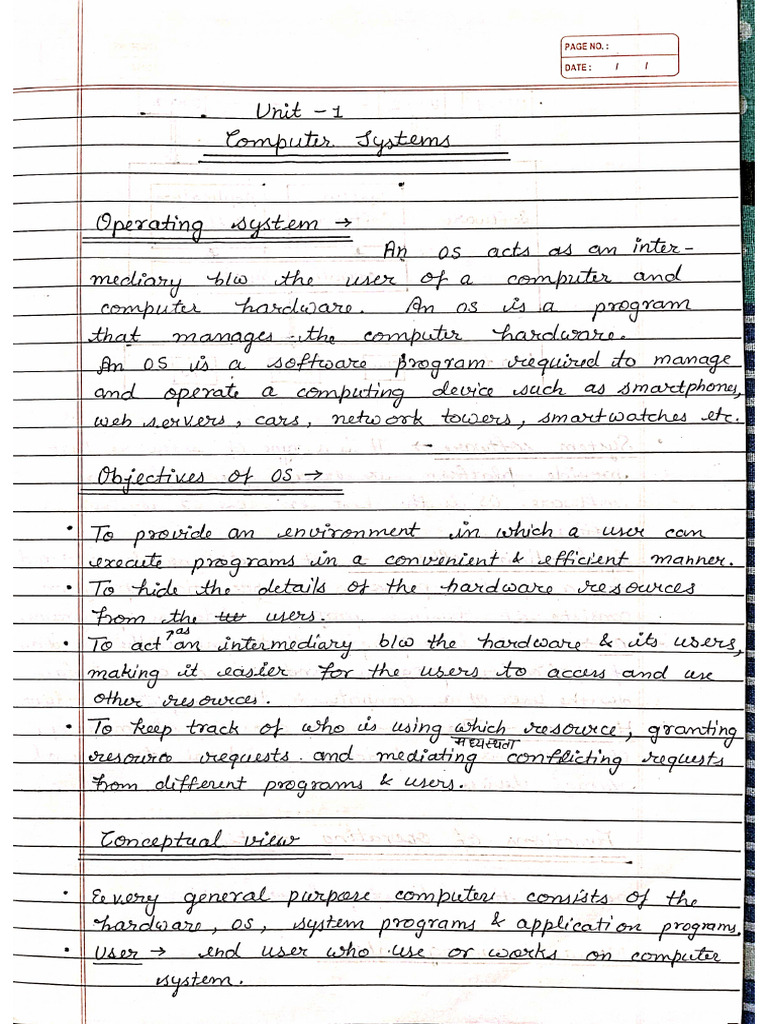 PAGE NO. :
DATE : / /
Unit - 1
Computer Systems
Operating system →
An OS acts as an inter-
mediary b/w the user of a computer and
computer hardware. An OS is a program
that manages the computer hardware.
An OS is a software program required to manage
and operate a computing device such as smartphones,
web servers, cars, network towers, smartwatches etc.
Objectives of OS →
• To provide an environment in which a user can
execute programs in a convenient & efficient manner.
• To hide the details of the hardware resources
from the users.
• To act as an intermediary b/w the hardware & its users,
making it easier for the users to access and use
other resources.
• To keep track of who is using which resource, granting
मध्यस्थता
resource requests and mediating conflicting requests
from different programs & users.
Conceptual view
• Every general purpose computer consists of the
hardware, OS, system programs & application programs.
• User → end user who use or works on computer
system.